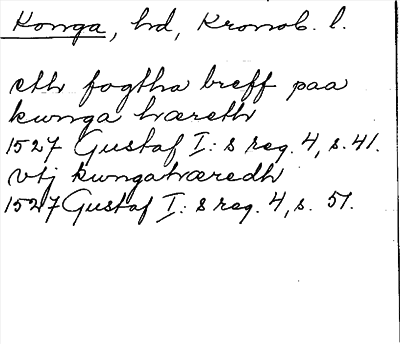 Konga, hd, Kronob. l.
eth fogtha breff paa
kwnga hæreth
1527 Gustaf I:s reg. 4, s. 41.
vtj kwngahæredh
1527 Gustaf I:s reg. 4, s. 51.